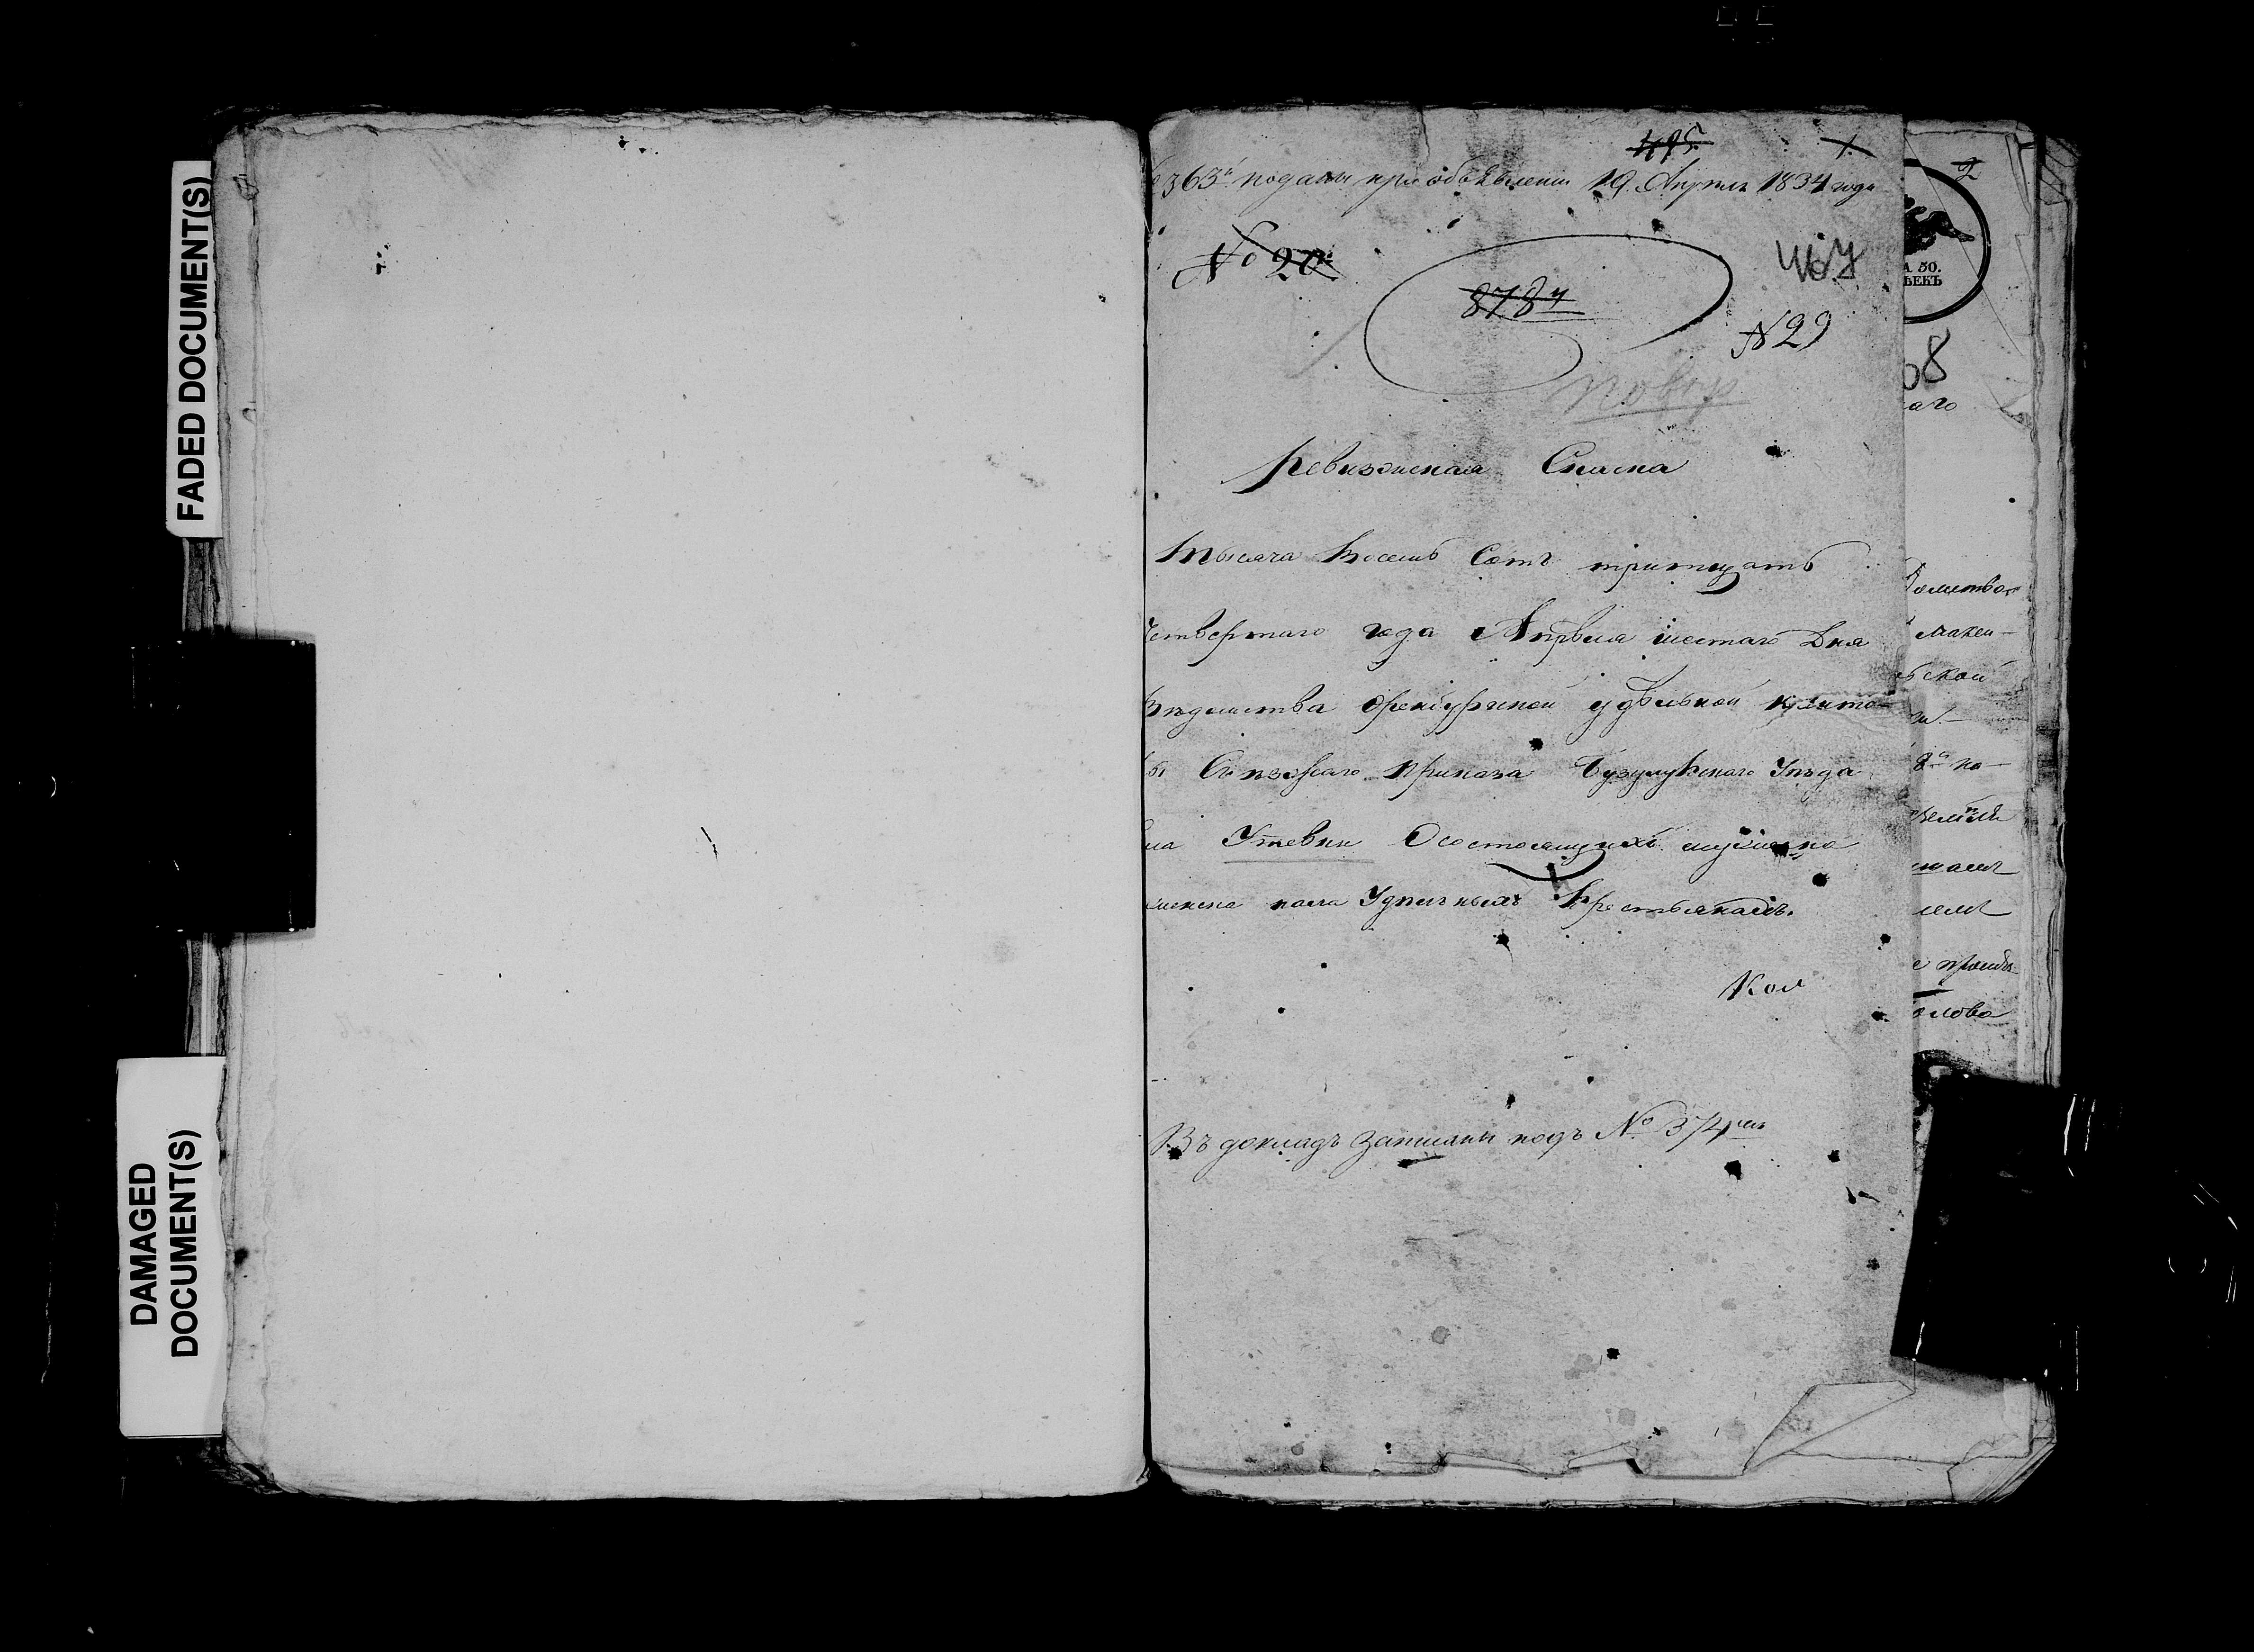 FADED DOCUMENT(S)
DAMAGED
DOCUMENT(S)
495
1.
363й поданы при объявлении 19. Апреля 1834 года
№ 20:
467
878й
N 29
повер
Ревизская Сказка
тысяча восемь Сотъ тритцать
Четвертаго года Апреля шестаго Дня
Ведомства Оренбургской удельной конто-
ры Съезжаго приказа Бузулукскаго Уезда
ла Утевки Осостоящихъ мужеска
женска пола Удельныхъ Крестьянахъ.
Коп
Въ докладъ записаны подъ № 374мъ
2
50.
ЪЕКЪ
68
аго
8й по-